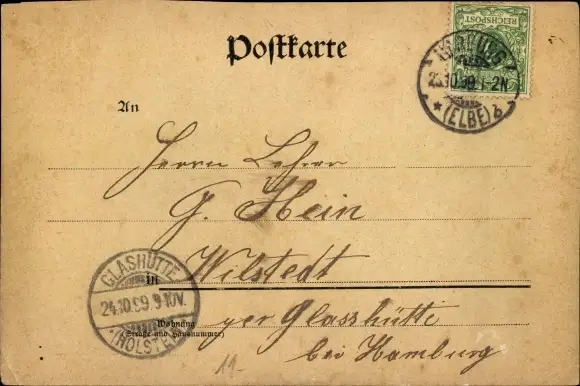 Postkarte
REICHSPOST
HARBURG
23.10.99.1-2N
* (ELBE) *
An
Herrn Lehrer
G. Hein
in Wilstedt
GLASHÜTTE
24.10.99.9-10V.
(HOLSTEIN)
Wohnung
(Straße und Hausnummer)
per Glasshütte
bei Hamburg
11-